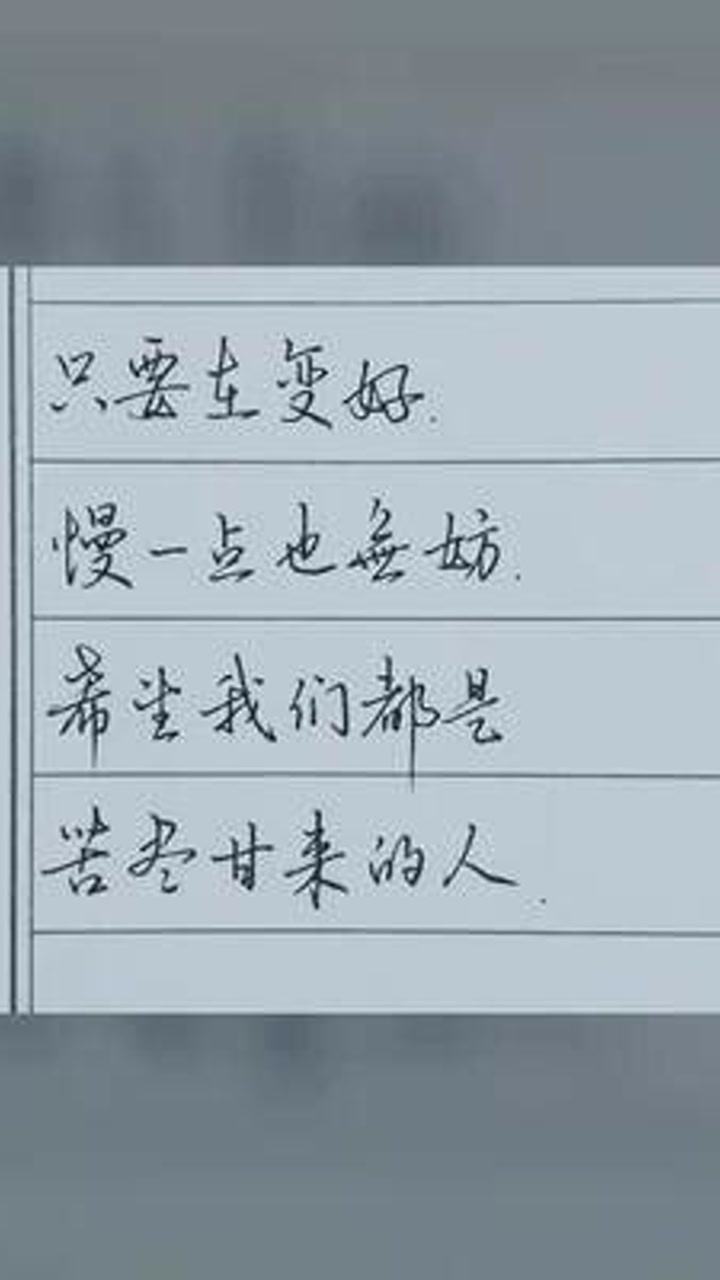 只要在变好.
慢一点也無妨.
希望我们都是
苦尽甘来的人.